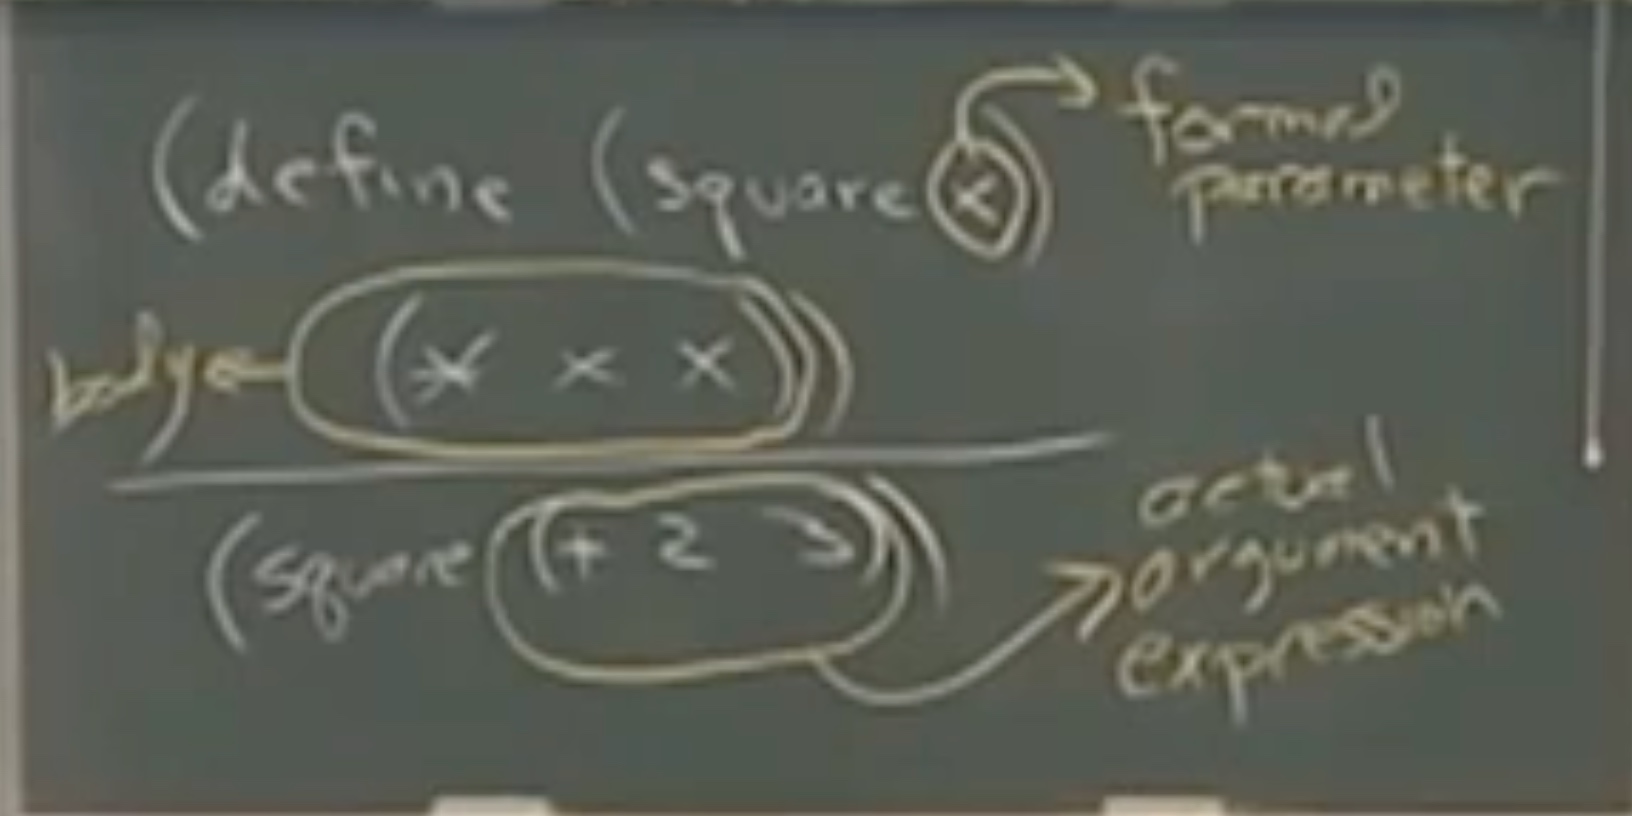 (define (square x)
formal
parameter
body
(* x x))
(square (+ 2 3))
actual
argument
expression